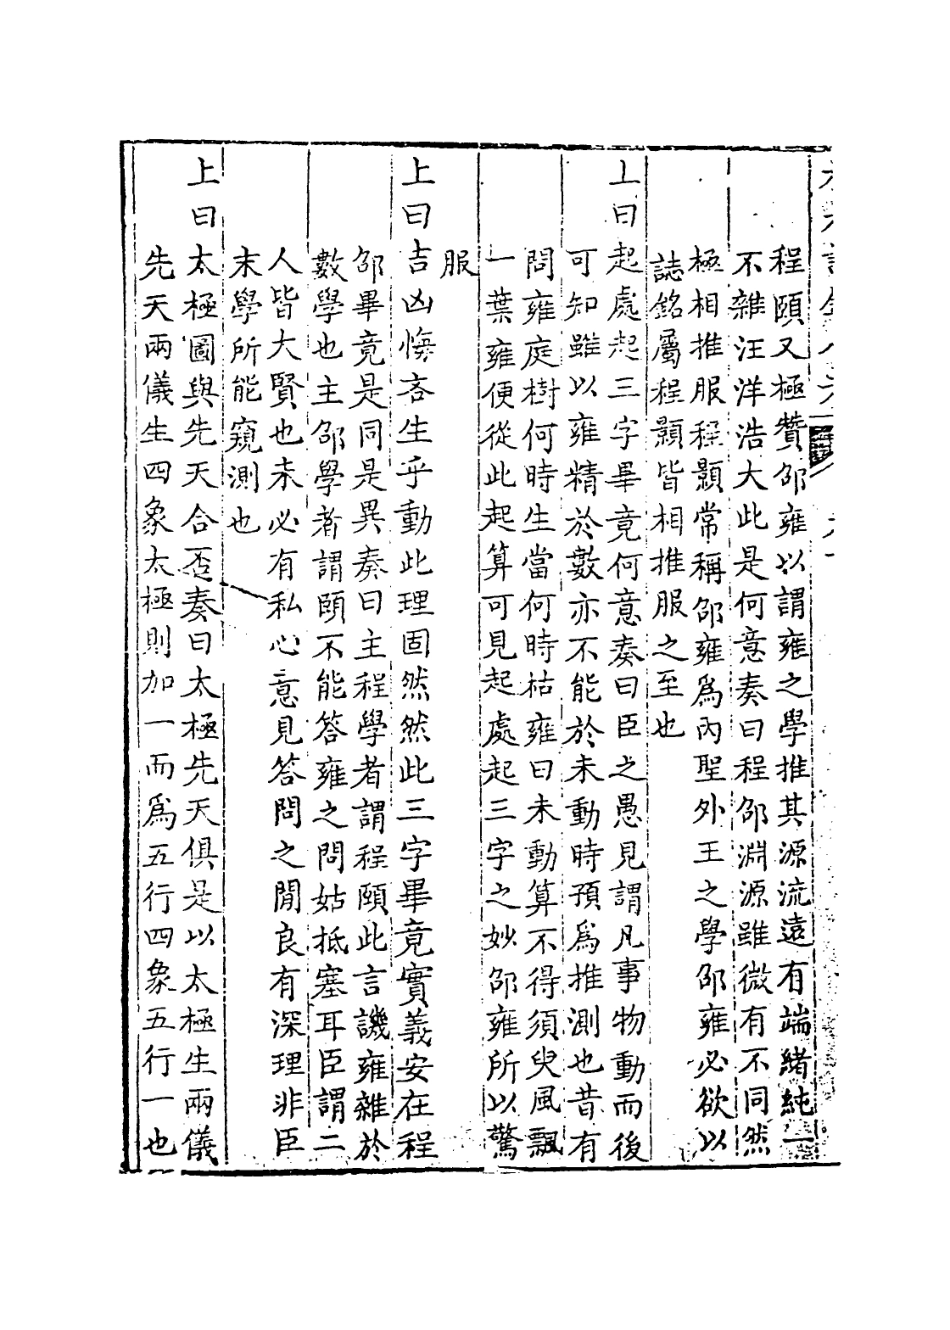 程頤又極贊邵雍以謂雍之學推其源流遠有端緒純一
不雜汪洋浩大此是何意奏曰程邵淵源雖微有不同然
極相推服程顥常稱邵雍爲內聖外王之學邵雍必欲以
誌銘屬程顥皆相推服之至也
上曰起處起三字畢竟何意奏曰臣之愚見謂凡事物動而後
可知雖以雍精於數亦不能於未動時預爲推測也昔有
問雍庭樹何時生當何時枯雍曰未動算不得須臾風飄
一葉雍便從此起算可見起處起三字之妙邵雍所以驚
服
上曰吉凶悔吝生乎動此理固然然此三字畢竟實義安在程
邵畢竟是同是異奏曰主程學者謂程頤此言譏雍雜於
數學也主邵學者謂頤不能答雍之問姑抵塞耳臣謂二
人皆大賢也未必有私心意見答問之閒良有深理非臣
末學所能窺測也
上曰太極圖與先天合否奏曰太極先天俱是以太極生兩儀
先天兩儀生四象太極則加一而爲五行四象五行一也